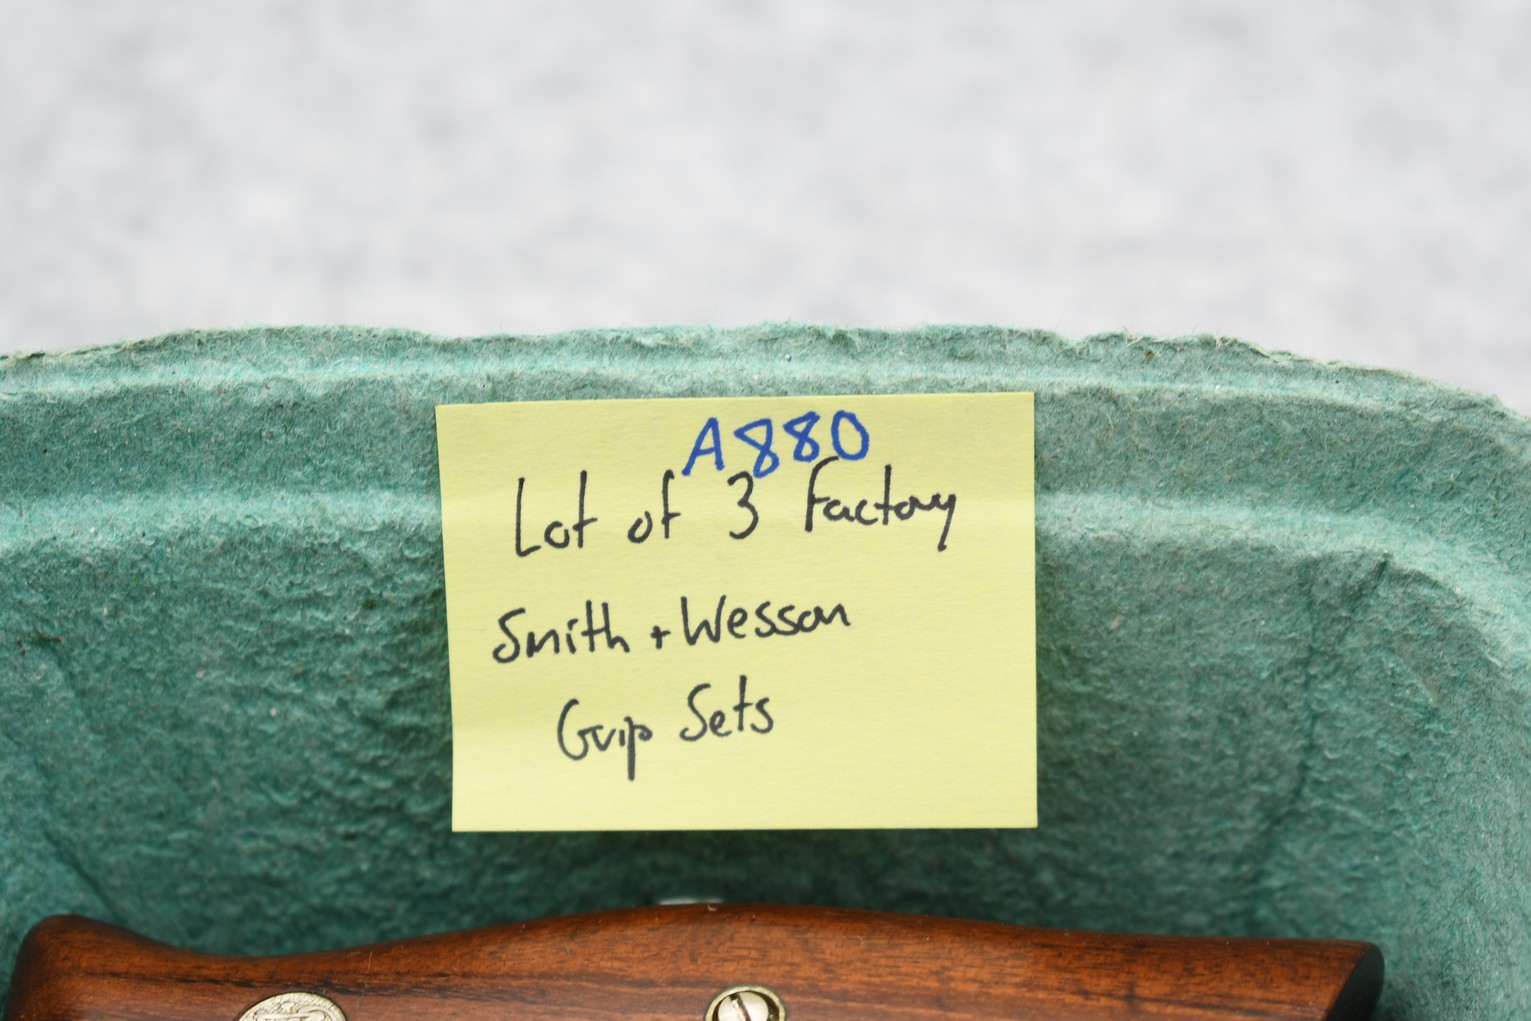 A880
Lot of 3 Factory
Smith + Wesson
Grip Sets